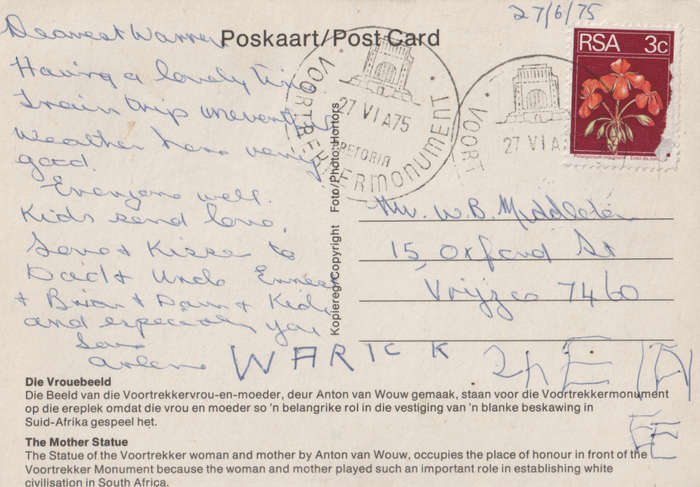 27/6/75
Poskaart/Post Card
RSA 3c
VOORTREKKERMONUMENT
27 VI A75
PRETORIA
VOORT
27 VI A75
Dearest Warren
Having a lovely
Train trip
Weather here very
good.
Everyone well.
Kids send love.
Love & Kisses to
Dad & Uncle
& Brian & Dawn & Kids
and especially you
Love
Arlene
Mr. W.B. Middleton
15, Oxford St
Vrijzee 7460
Kopiereg/Copyright Foto/Photo: Hortors
WARICK
Die Vrouebeeld
Die Beeld van die Voortrekkervrou-en-moeder, deur Anton van Wouw gemaak, staan voor die Voortrekkermonument
op die ereplek omdat die vrou en moeder so 'n belangrike rol in die vestiging van 'n blanke beskawing in
Suid-Afrika gespeel het.
The Mother Statue
The Statue of the Voortrekker woman and mother by Anton van Wouw, occupies the place of honour in front of the
Voortrekker Monument because the woman and mother played such an important role in establishing white
civilisation in South Africa.